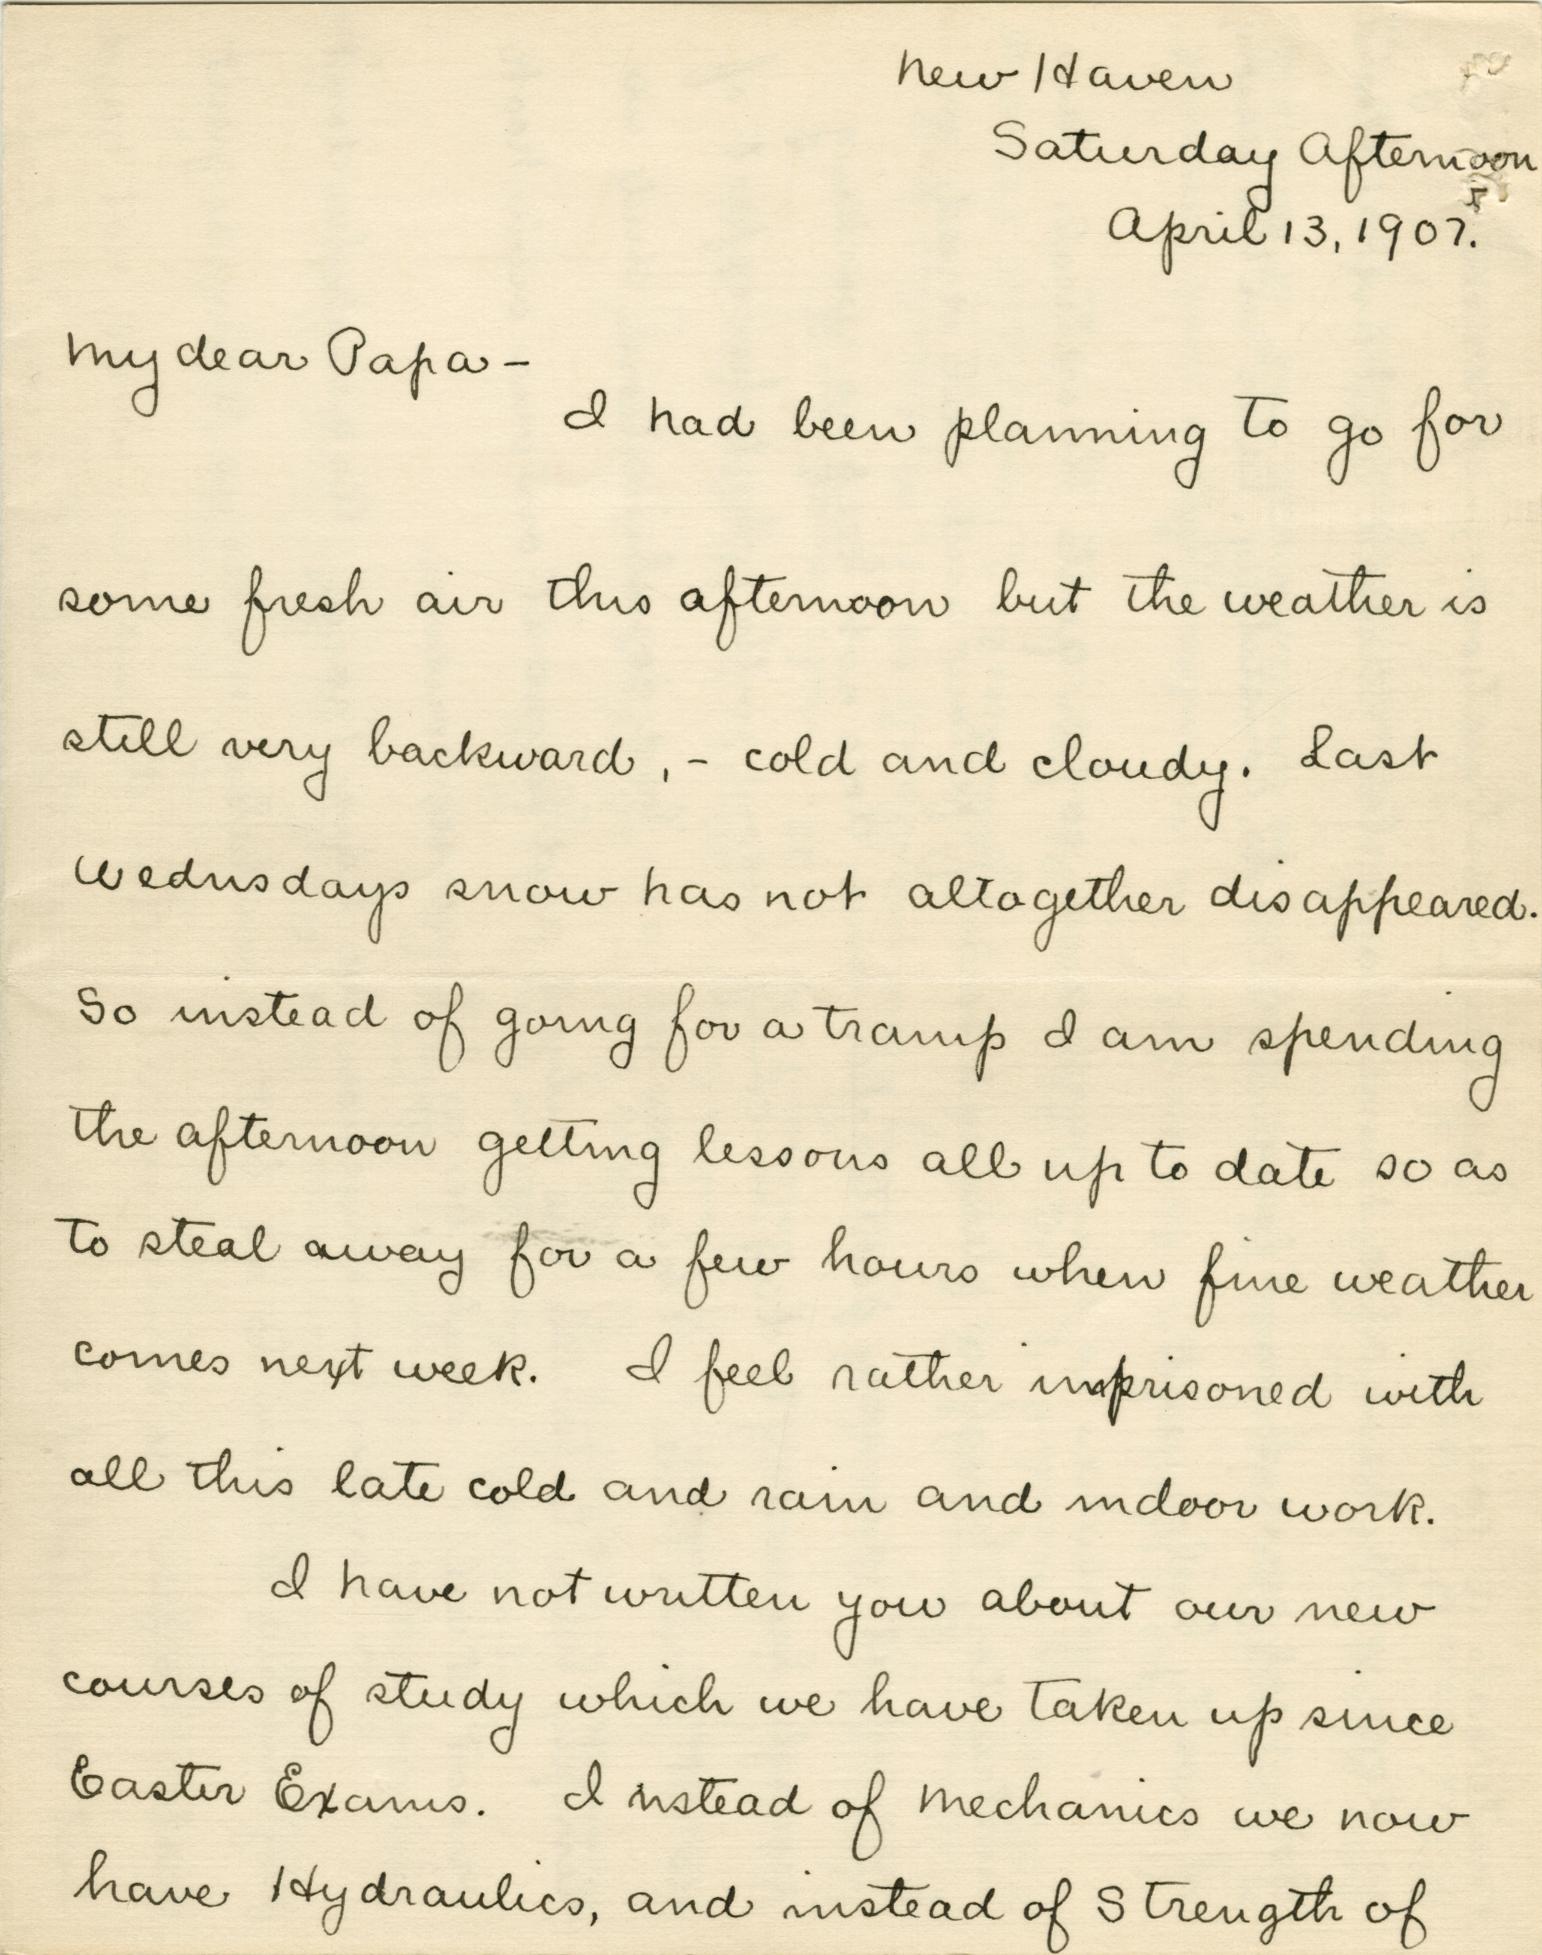 New Haven
Saturday Afternoon
April 13, 1907.
My dear Papa -
I had been planning to go for
some fresh air this afternoon but the weather is
still very backward, - cold and cloudy. Last
Wednsdays snow has not altogether disappeared.
So instead of going for a tramp I am spending
the afternoon getting lessons all up to date so as
to steal away for a few hours when fine weather
comes next week. I feel rather imprisoned with
all this late cold and rain and indoor work.
I have not written you about our new
courses of study which we have taken up since
Easter Exams. Instead of Mechanics we now
have Hydraulics, and instead of Strength of